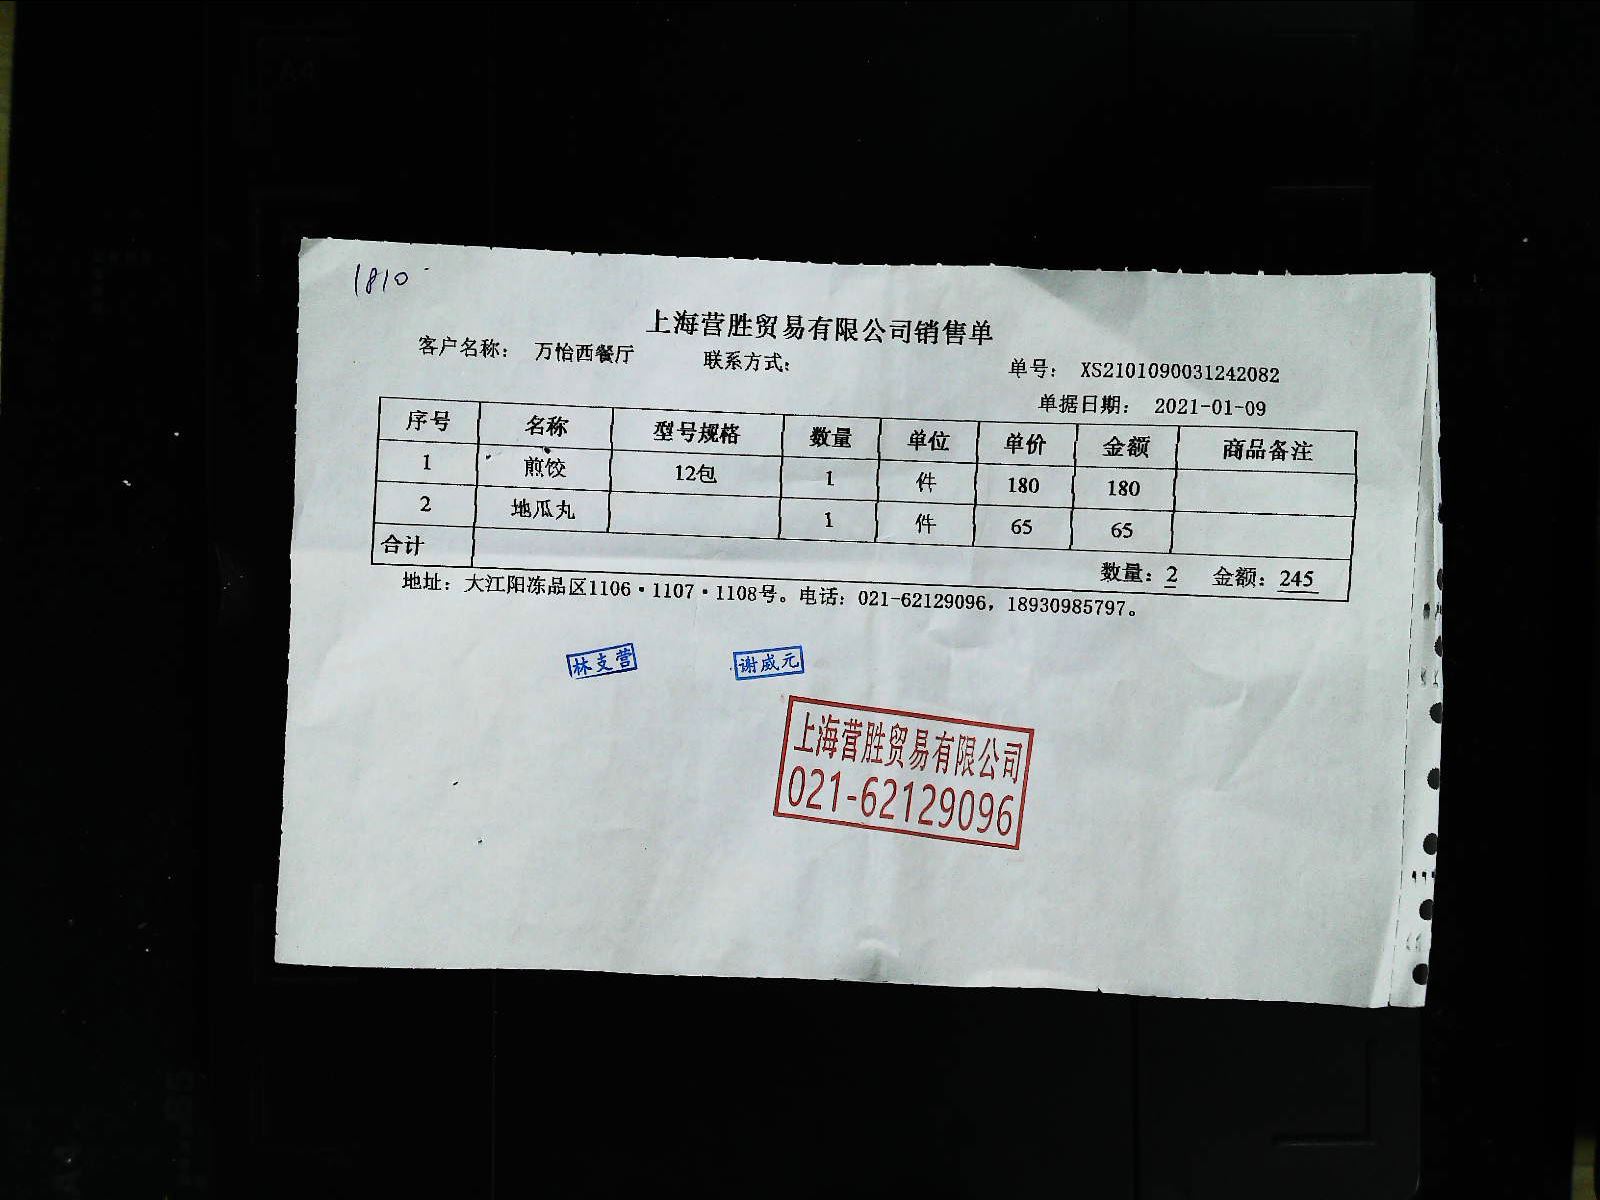 1810
上海营胜贸易有限公司销售单
客户名称： 万怡西餐厅 联系方式： 单号： XS2101090031242082
单据日期： 2021-01-09
序号 名称 型号规格 数量 单位 单价 金额 商品备注
1 煎饺 12包 1 件 180 180
2 地瓜丸 1 件 65 65
合计 数量：2 金额：245
地址：大江阳冻品区1106·1107·1108号。电话：021-62129096，18930985797。
林支营 谢威元
上海营胜贸易有限公司
021-62129096